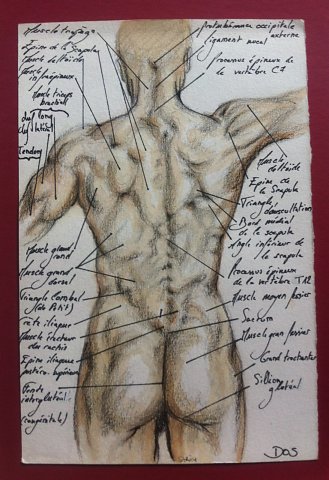 Muscle trapèze
Epine de la Scapula
Muscle deltoïde
Muscle
infraépineux
Muscle triceps
brachial
chef long
chef latéral
tendons
Muscle grand
rond
Muscle grand
dorsal
Triangle lombal
(de Petit)
crête iliaque
Muscle érecteur
du rachis
Epine iliaque
postéro. supérieure
Fente
interglutéale
(congénitale)
protubérance occipitale
externe
ligament nucal
Processus épineux de
la vertèbre C7
Muscle
deltoïde
Epine de
la Scapula
Triangle
d'auscultation
Bord médial
de la scapula
Angle inférieur de
la scapula
Processus épineux
de la vertèbre T12
Muscle moyen fessier
Sacrum
Muscle gran fessier
Grand trochanter
Sillon
glutéal
DOS